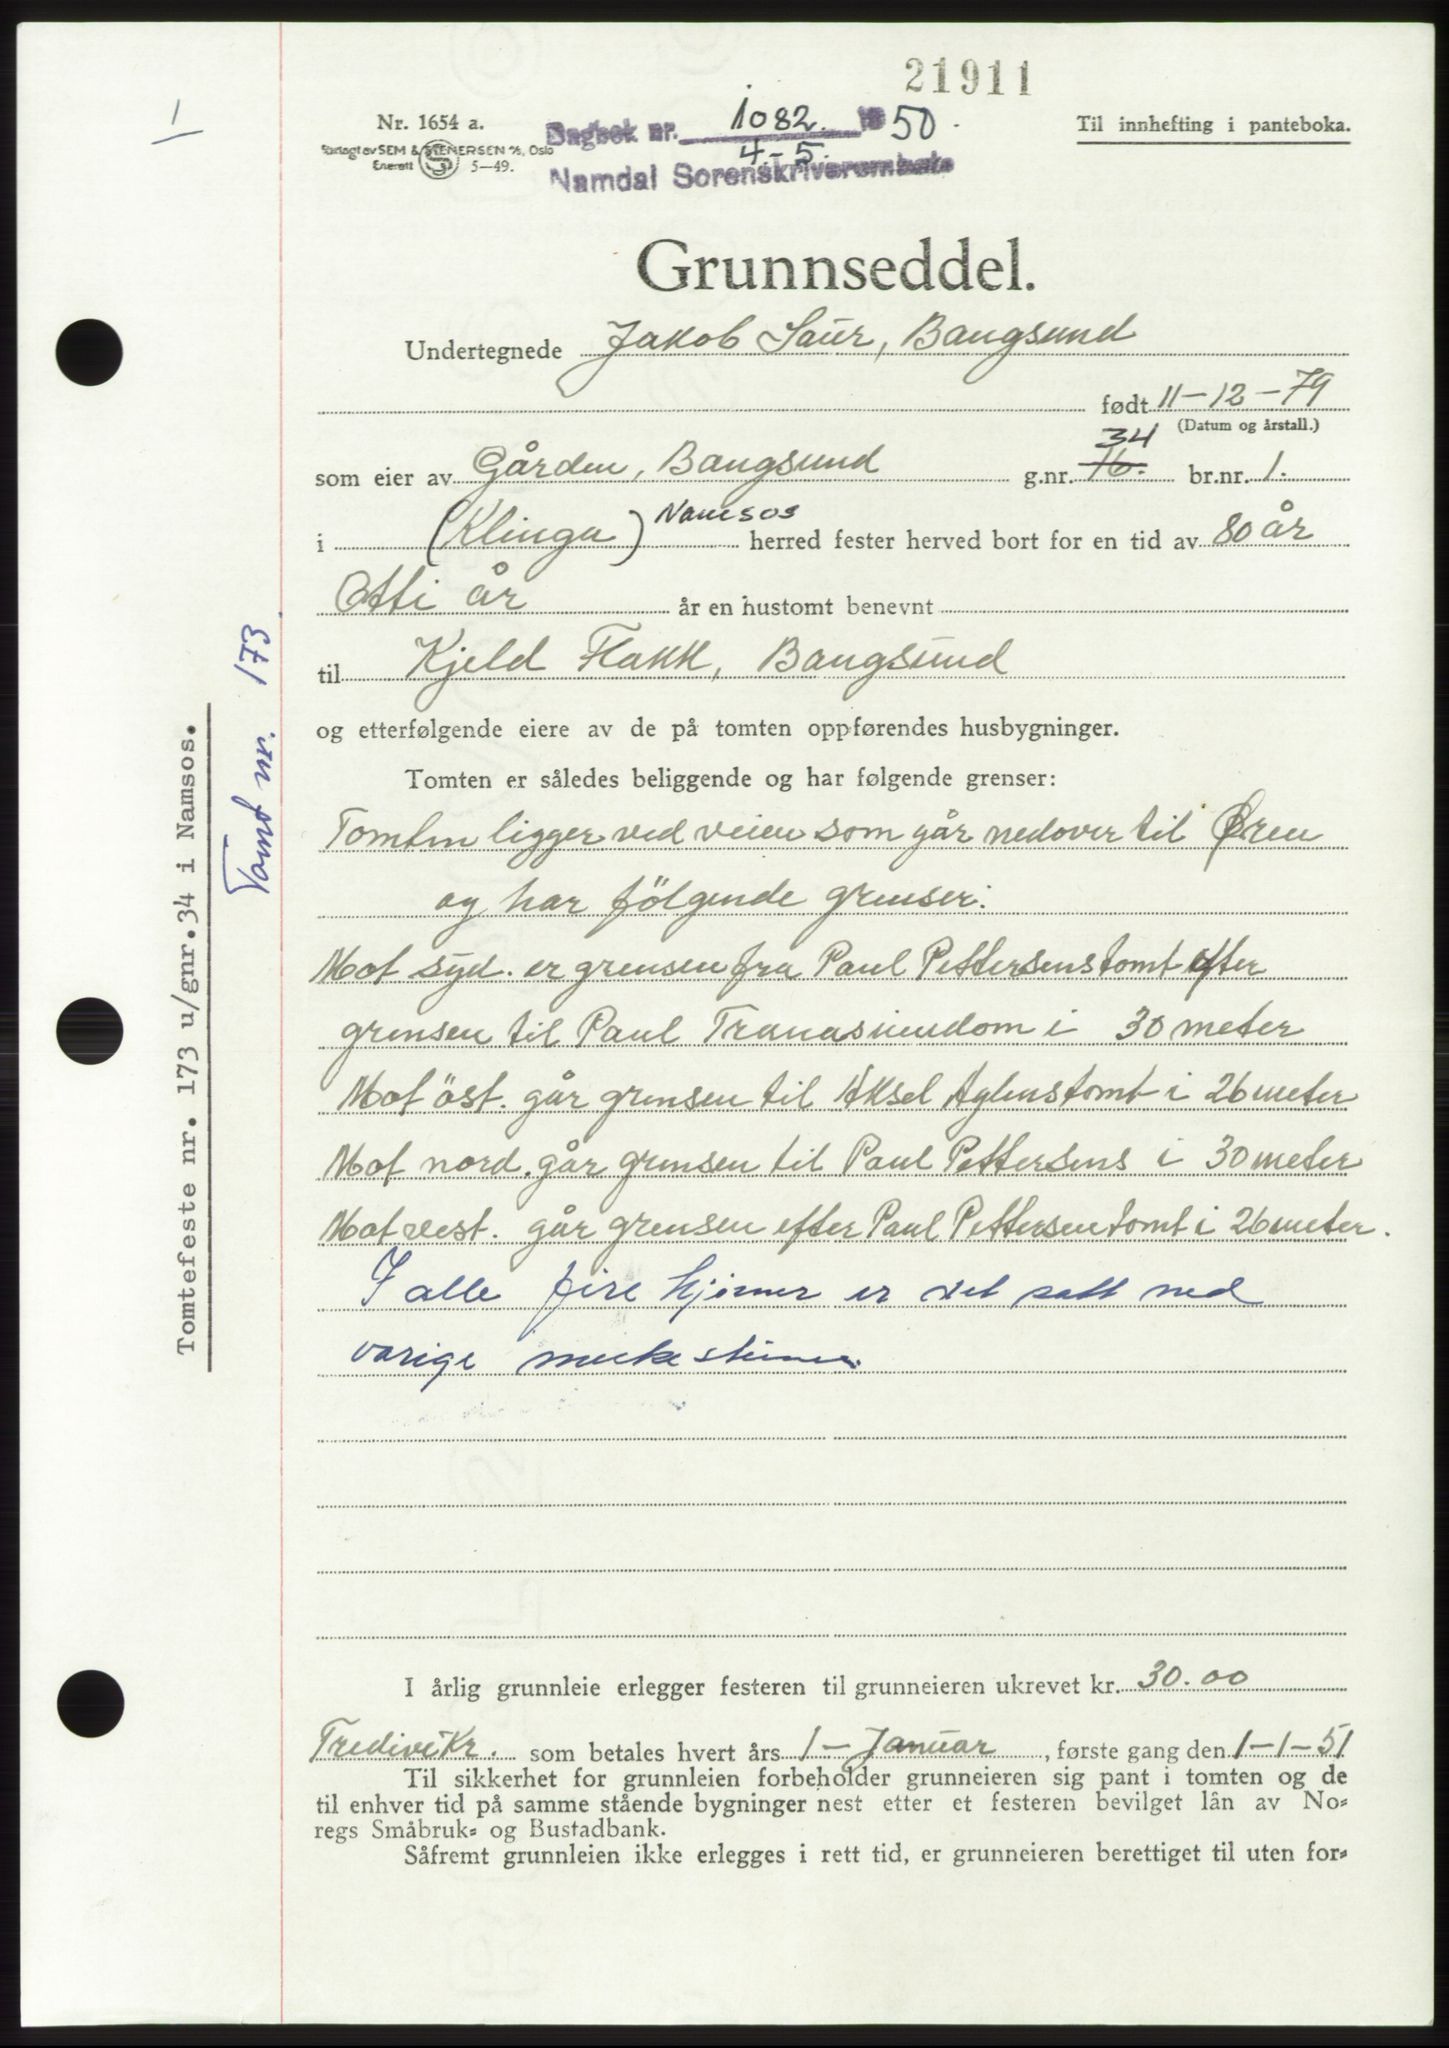 21911
1
Nr. 1654 a.
Forlagt av SEM & STENERSEN A/S, Oslo
Enerett S 5—49.
Dagbok nr. 1082. 1950.
4-5.
Namdal Sorenskriverembete
Til innhefting i panteboka.
Grunnseddel.
Undertegnede Jakob Saur, Bangsund
født 11-12-79
(Datum og årstall.)
34
som eier av Gården, Bangsund g.nr. 16. br.nr. 1.
i (Klinga) Namsos herred fester herved bort for en tid av 80 år
Otti år år en hustomt benevnt
til Kjeld Flakk, Bangsund
og etterfølgende eiere av de på tomten oppførendes husbygninger.
Tomten er således beliggende og har følgende grenser:
Tomten ligger ved veien som går nedover til Øren
og har fölgende grenser:
Mot syd. er grensen fra Paul Pettersens tomt efter
grensen til Paul Tranas eiendom i 30 meter
Mot öst. går grensen til Aksel Aglens tomt i 26 meter
Mot nord. går grensen til Paul Pettersens i 30 meter
Mot vest. går grensen efter Paul Pettersen tomt i 26 meter.
I alle fire hjörner er det satt ned
varige merkesteiner.
I årlig grunnleie erlegger festeren til grunneieren ukrevet kr. 30.00
Tredive Kr. som betales hvert års 1 - Januar, første gang den 1-1-51
Til sikkerhet for grunnleien forbeholder grunneieren sig pant i tomten og de
til enhver tid på samme stående bygninger nest etter et festeren bevilget lån av No-
regs Småbruk- og Bustadbank.
Såfremt grunnleien ikke erlegges i rett tid, er grunneieren berettiget til uten for-
Tomtefeste nr. 173 u/gnr.34 i Namsos.
Tomt nr. 173